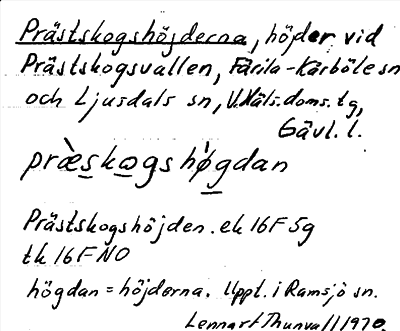 Prästskogshöjderna, höjder vid
Prästskogsvallen, Färila-Kårböle sn
och Ljusdals sn, V. Häls. doms. tg,
Gävl. l.
præ̀skogshǿgdan
Prästskogshöjden. ek 16F5g
tk 16F NO
högdan = höjderna. Uppt. i Ramsjö sn.
Lennart Thunvall 1970.